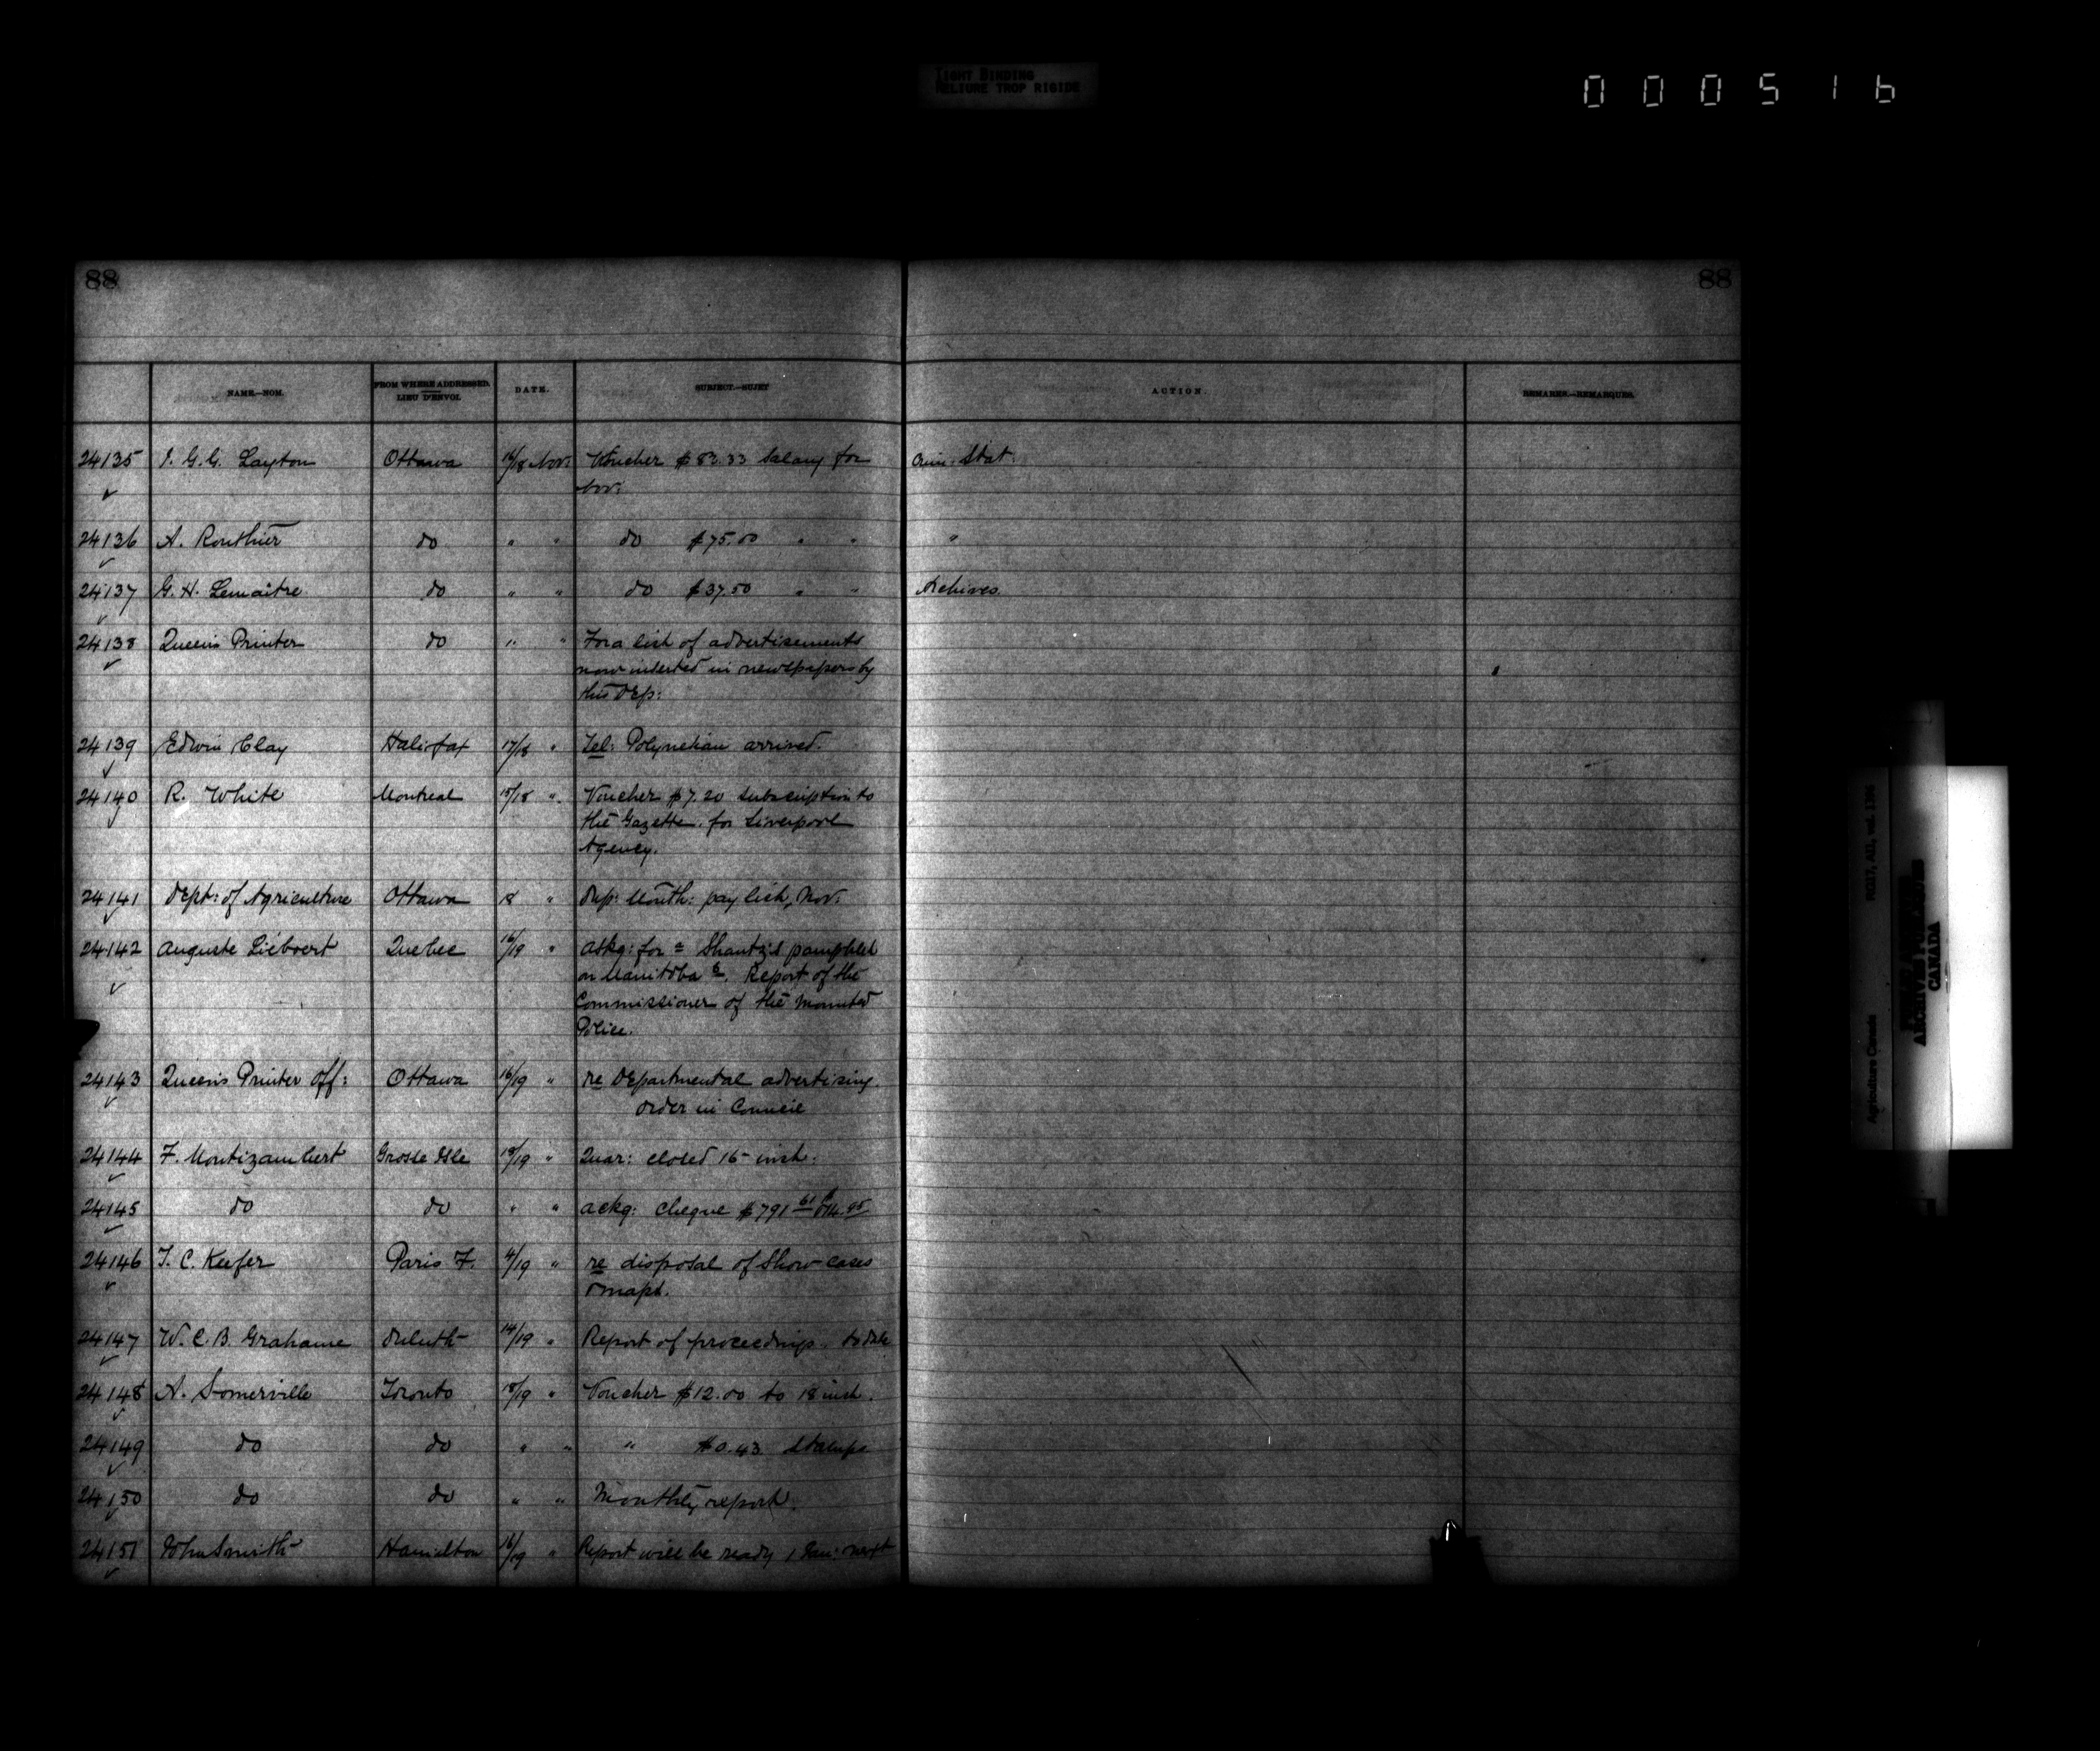 TIGHT BINDING
RELIURE TROP RIGIDE
000516
88 88
NAME.—NOM. FROM WHERE ADDRESSED. LIEU D'ENVOI. DATE. SUBJECT.—SUJET ACTION. REMARKS.—REMARQUES.
24135 I. G. G. Layton Ottawa 16/18 Nov: Voucher $83.33 Salary for Crim: Stat:
Nov:
24136 A. Routhier do " " do $75.00 " " "
24137 G. H. Lemaitre do " " do $37.50 " " Archives.
24138 Queen's Printer do " " For a list of advertisements
now inserted in newspapers by
this Dep:
24139 Edwin Clay Halifax 17/18 " Tel: Polynesian arrived.
24140 R. White Montreal 15/18 " Voucher $7.20 subscription to
the Gazette for Liverpool
Agency.
24141 Dept: of Agriculture Ottawa 18 " Dup: Month: pay list, Nov:
24142 Auguste Quebec 16/19 " askg: for Shantz's pamphlet
on Manitoba & Report of the
Commissioner of the Mounted
Police.
24143 Queen's Printer Off: Ottawa 16/19 " re Departmental advertising.
Order in Council
24144 F. Montizambert Grosse Isle 15/19 " Quar: closed 15 inst:
24145 do do " " ackg: cheque $791 61
24146 T. C. Keefer Paris F. 4/19 " re disposal of Show cases
& maps.
24147 W. C. B. Grahame Duluth 14/19 " Report of proceedings. to date
24148 A. Somerville Toronto 18/19 " Voucher $12.00 to 18 inst.
24149 do do " " " $0.43 Stamps
24150 do do " " Monthly report.
24151 John Smith Hamilton 16/19 " Report will be ready 1 Jan: next
RG17, AII, vol. 1396
Agriculture Canada
PUBLIC ARCHIVES
ARCHIVES PUBLIQUES
CANADA